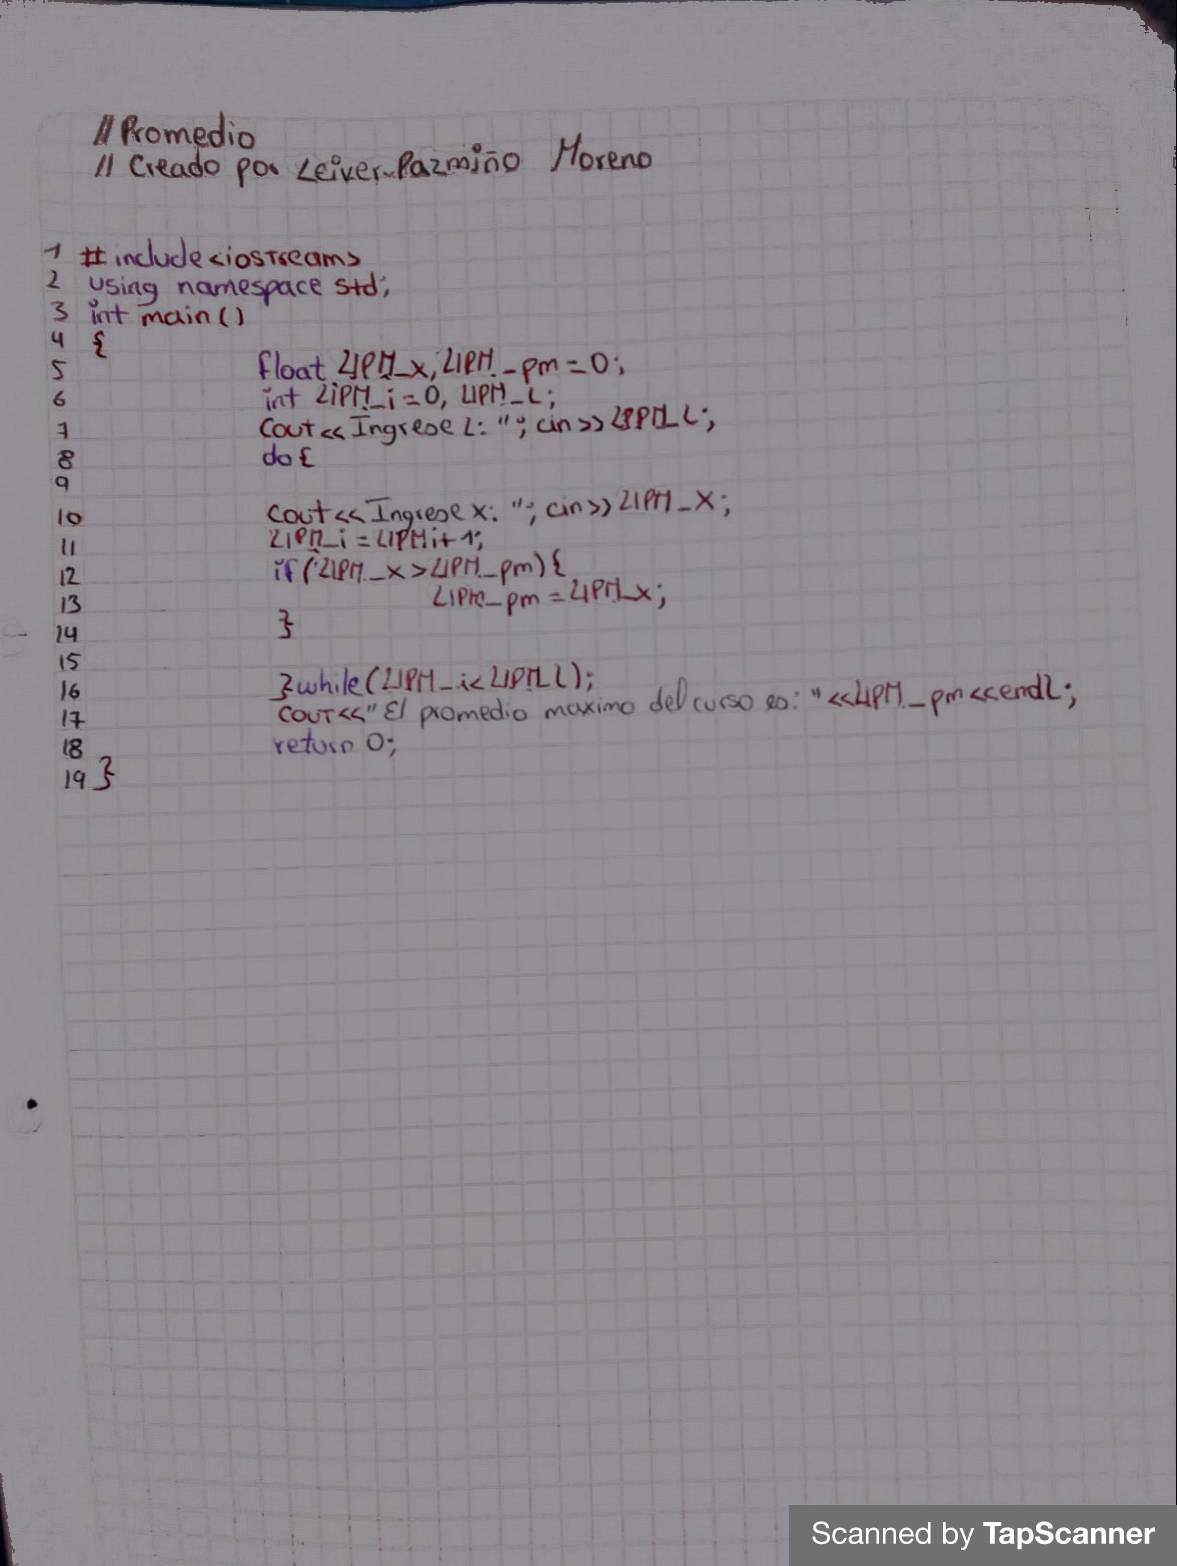 // Promedio
// Creado por Leiver Pazmiño Moreno
1 #include<iostream>
2 using namespace std;
3 int main()
4 {
5 float LIPM_x, LIPM_pm=0;
6 int LIPM_i=0, LIPM_L;
7 Cout<<Ingrese L: "; cin>>LIPM_L;
8 do{
9
10 cout<<Ingrese x: "; cin>>LIPM_X;
11 LIPM_i=LIPMi+1;
12 if(LIPM_x>LIPM_pm){
13 LIPM_pm=LIPM_x;
14 }
15
16 }while(LIPM_i<LIPM_L);
17 cout<<"El promedio maximo del curso es: "<<LIPM_pm<<endl;
18 return 0;
19 }
Scanned by TapScanner